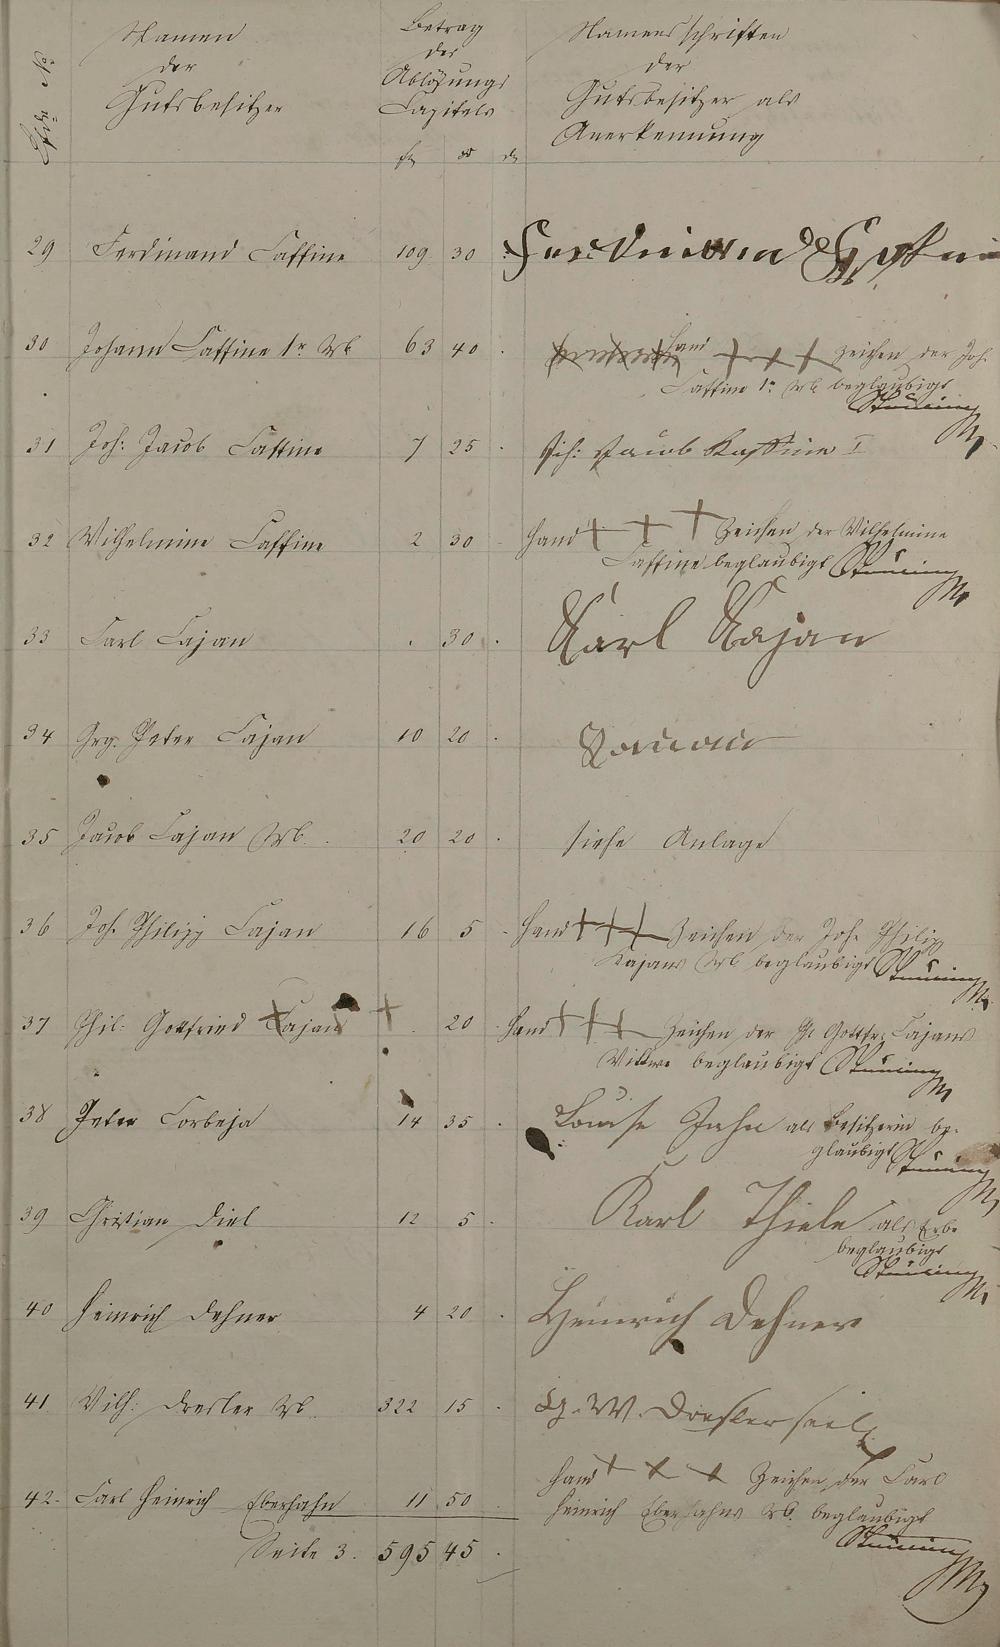 Namen
der
Gutsbesitzer
Betrag
des
Ablösungs
Capitals
Namensschriften
der
Gutsbesitzer als
Anerkennung
29 Ferdinand Caffine 109 30
30 Johann Caffine 1r Wb 63 40 .
Hand +++ Zeichen der Joh.
Caffine 1r Wb beglaubigt
31 Joh: Jacob Caffine 7 25 . Joh: Jacob Kaffine I
32 Wilhelmine Caffine 2 30 . Hand + + + Zeichen der Wilhelmine
Caffine beglaubigt
33 Carl Cajan . 30 . Karl Kajan
34 Grg. Peter Cajan 10 20 .
35 Jacob Cajan Wb. 20 20 . siehe Anlage
36 Joh. Philipp Cajan 16 5 . Hand +++ Zeichen der Joh. Philip
Kajans Wb beglaubigt
37 Phil: Gottfried Cajan . 20 . Hand +++ Zeichen der Ph. Gottfr: Cajans
Wittwe beglaubigt
38 Peter Corbeja 14 35 . Louise Jahn als Besitzerin be-
glaubigt
39 Christian Diel 12 5 . Karl Thiele als Erbe
beglaubigt
40 Heinrich Dehner 4 20 . Heinrich Dehner
41 Wilh: Dresler Wb. 322 15 .
42. Carl Heinrich Eberhahn 11 50 Hand + x + Zeichen der Carl
Heinrich Eberhahns Wb. beglaubigt
Seite 3. 595 45 .